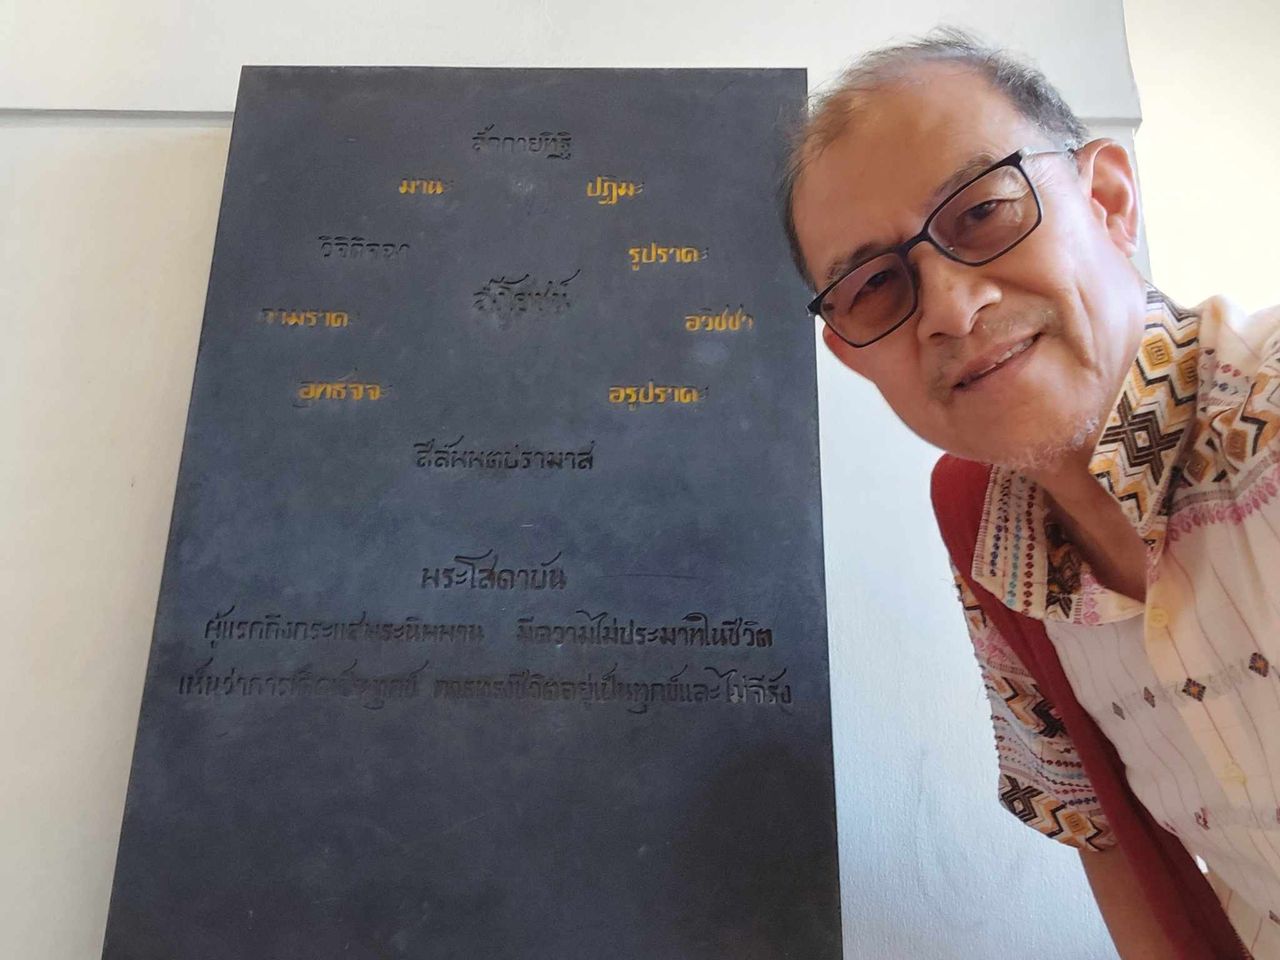 สักกายทิฐิ
มานะ ปฏิฆะ
วิจิกิจฉา รูปราคะ
สังโยชน์
กามราคะ อวิชชา
อุทธัจจะ อรูปราคะ
สีลัพพตปรามาส
พระโสดาบัน
ผู้แรกถึงกระแสพระนิพพาน มีความไม่ประมาทในชีวิต
เห็นว่าการเกิดเป็นทุกข์ การทรงชีวิตอยู่เป็นทุกข์และไม่จีรัง